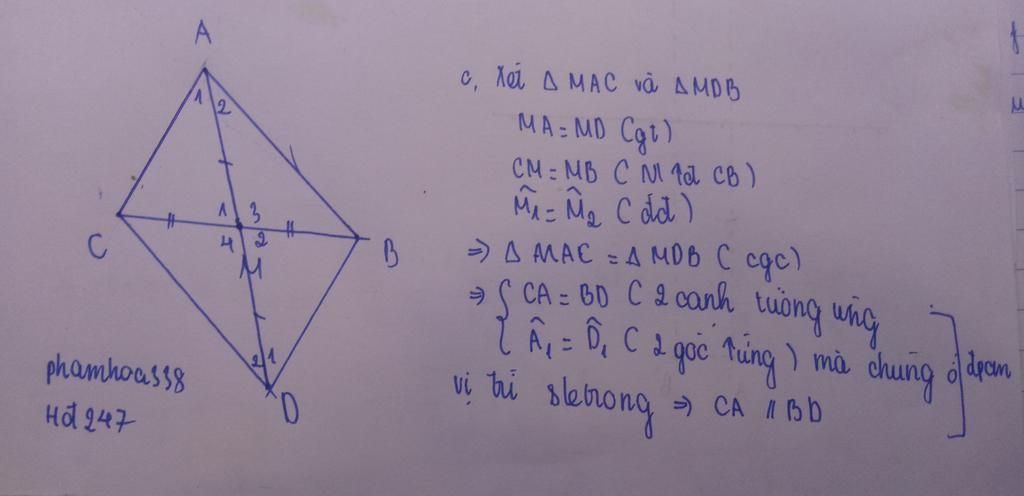 A
1 2
1 3
4 2
C
B
M
2 1
D
phamhoa338
Hđ 247
c, Xét Δ MAC và ΔMDB
MA = MD (gt)
CM = MB ( M tđ CB)
M̂₁ = M̂₂ ( đđ)
⇒ Δ MAC = Δ MDB ( cgc)
⇒ { CA = BD ( 2 cạnh tương ứng
{ Â₁ = D̂₁ ( 2 góc tứng ) mà chúng ở
vị trí sletrong ⇒ CA // BD
đpcm